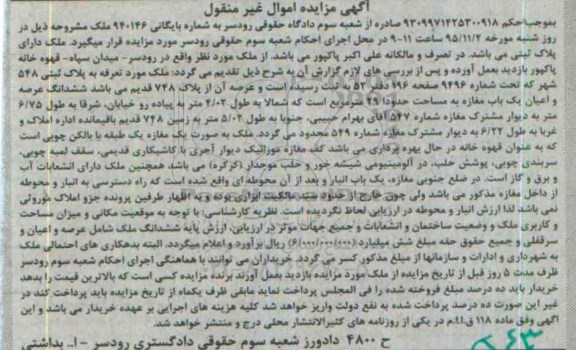 آگهی مزایده اموال غیر منقول
بموجب حکم ۹۳۰۹۹۷۱۴۲۵۳۰۰۹۱۸ صادره از شعبه سوم دادگاه حقوقی رودسر به شماره بایگانی ۹۴۰۱۴۶ ملک مشروحه ذیل در
روز شنبه مورخه ۹۵/۱۱/۲ ساعت ۱۱-۹ در محل اجرای احکام شعبه سوم حقوقی رودسر مورد مزایده قرار میگیرد. ملک دارای
پلاک ثبتی می باشد. در تصرف و مالکانه علی اکبر پاکپور می باشد. از ملک مورد نظر واقع در رودسر- میدان سپاه- قهوه خانه
پاکپور بازدید بعمل آورده و پس از بررسی های لازم گزارش آن به شرح ذیل تقدیم می گردد: ملک مورد تعرفه به پلاک ثبتی ۵۴۸
شهر که تحت شماره ۹۴۹۶ صفحه ۱۹۶ دفتر ۵۲ به ثبت رسیده است و عرصه آن از پلاک ۷۴۸ قدیم می باشد ششدانگ عرصه
و اعیان یک باب مغازه به مساحت حدودا ۲۹ مترمربع است که شمالا به طول ۴/۰۲ متر به پیاده رو خیابان، شرقا به طول ۶/۷۵
متر به دیوار مشترک مغازه شماره ۵۴۷ آقای بهرام حبیبی، جنوبا به طول ۵/۰۲ متر به زمین ۷۴۸ قدیم باقیمانده اداره املاک و
غربا به طول ۶/۲۲ به دیوار مشترک مغازه شماره ۵۴۹ محدود می گردد. ملک به صورت یک مغازه یک طبقه با بالکن چوبی است
که به عنوان قهوه خانه در حال بهره برداری می باشد کف مغازه موزائیک دیوار آجری با کاشیکاری قدیمی، سقف لمبه چوبی،
سربندی چوبی، پوشش حلب، در آلومینیومی شیشه خور و حلب موجدار (کرکره) می باشد همچنین ملک دارای انشعابات آب
و برق و گاز است. در ضلع جنوبی مغازه، یک باب انبار و بعد از آن محوطه ای واقع شده است که راه دسترسی به انبار و محوطه
از داخل مغازه مذکور می باشد ولی چون خارج از حدود سند مالکیت ابرازی بوده و به اظهار طرفین پرونده جزو املاک موروثی
نمی باشد لذا ارزش انبار و محوطه در ارزیابی لحاظ نگردیده است. نظریه کارشناسی: با توجه به موقعیت مکانی و میزان مساحت
و کاربری ملک و وضعیت ساختمان و انشعابات و جمیع جهات موثر در ارزیابی، ارزش پایه ششدانگ ملک شامل عرصه و اعیان و
سرقفلی و جمیع حقوق حقه مبلغ شش میلیارد (۶/۰۰۰/۰۰۰/۰۰۰) ریال برآورد و اعلام میگردد. البته بدهکاری های احتمالی ملک
به شهرداری و ادارات و سازمانها از مبلغ مذکور کسر می گردد. خریداران می توانند با هماهنگی اجرای احکام شعبه سوم رودسر
ظرف مدت ۵ روز قبل از تاریخ مزایده از ملک مورد مزایده بازدید بعمل آورند برنده مزایده کسی است که بالاترین قیمت را بدهد
خریدار باید ده درصد مبلغ فروخته شده را فی المجلس پرداخت نماید مابقی ظرف یکماه از تاریخ مزایده باید پرداخت کند در
غیر این صورت ده درصد پرداخت شده به نفع دولت واریز خواهد شد کلیه هزینه های اجرایی بر عهده خریدار می باشد و این
آگهی وفق ماده ۱۱۸ ق.ا.ا.م در یکی از روزنامه های کثیرالانتشار محلی درج و منتشر خواهد شد.
ح ۴۸۰۰ دادورز شعبه سوم حقوقی دادگستری رودسر - ا.. بداشتی